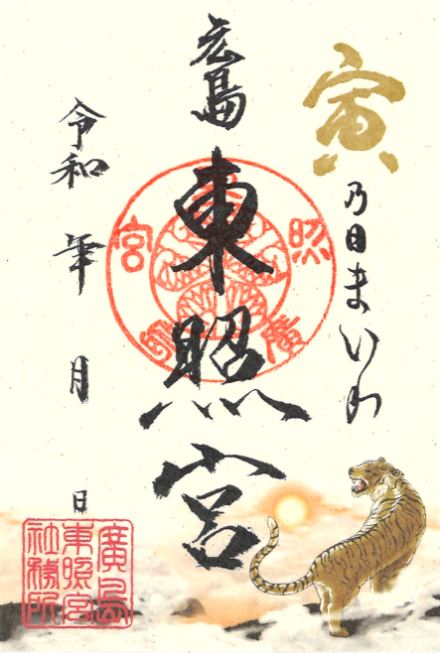 寅乃日まいり
広島
東照宮
令和 年 月 日
廣島
東照宮
社務所